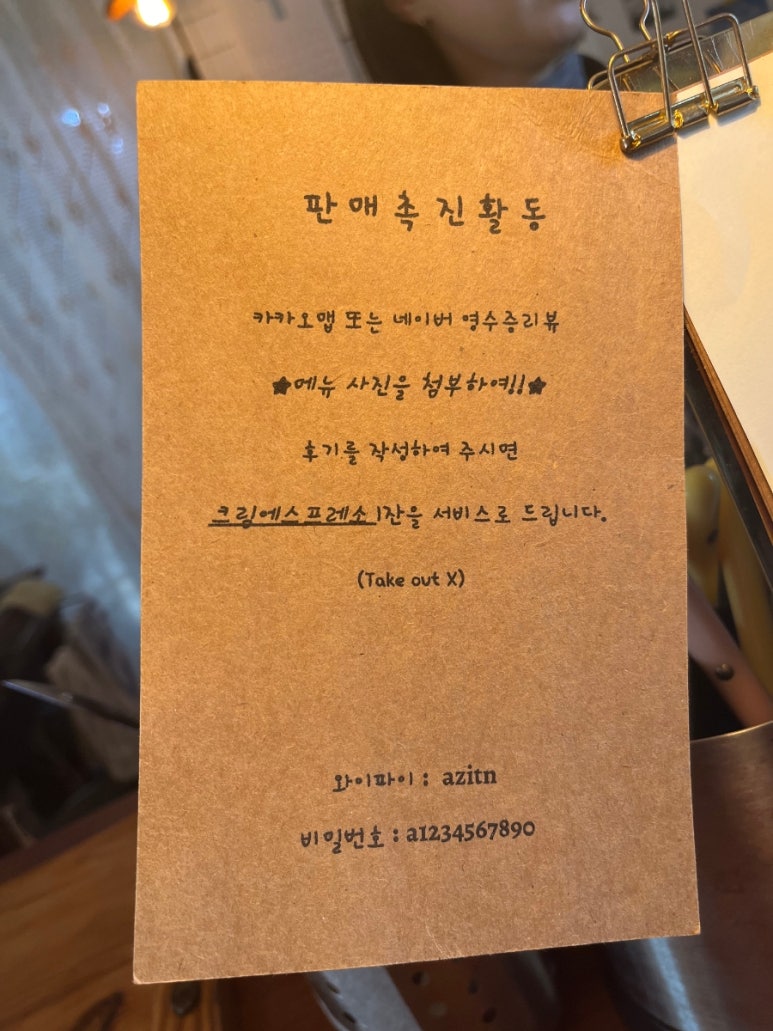 판매촉진활동
카카오맵 또는 네이버 영수증리뷰
★메뉴 사진을 첨부하여!!★
후기를 작성하여 주시면
크림에스프레소 1잔을 서비스로 드립니다.
(Take out X)
와이파이 : azitn
비밀번호 : a1234567890